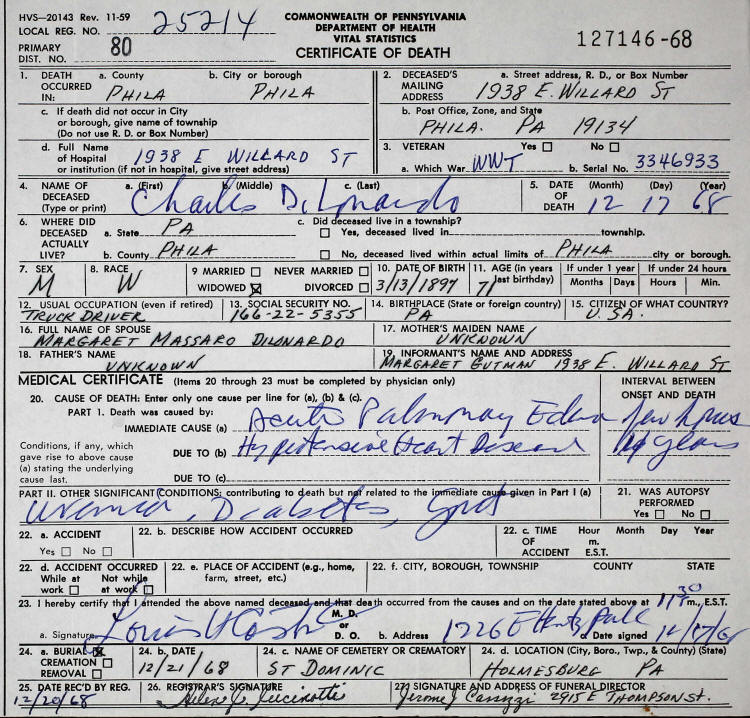 HVS—20143 Rev. 11-59
LOCAL REG. NO. 25214
PRIMARY DIST. NO. 80
COMMONWEALTH OF PENNSYLVANIA
DEPARTMENT OF HEALTH
VITAL STATISTICS
CERTIFICATE OF DEATH
127146-68
1. DEATH OCCURRED IN: a. County PHILA b. City or borough PHILA
c. If death did not occur in City or borough, give name of township (Do not use R. D. or Box Number)
d. Full Name of Hospital or institution (if not in hospital, give street address) 1938 E WILLARD ST
2. DECEASED'S MAILING ADDRESS a. Street address, R. D., or Box Number 1938 E. WILLARD ST
b. Post Office, Zone, and State PHILA. PA 19134
3. VETERAN Yes No
a. Which War WWI b. Serial No. 3346933
4. NAME OF DECEASED (Type or print) a. (First) b. (Middle) c. (Last) Charles DiLonardo
5. DATE OF DEATH (Month) (Day) (Year) 12 17 68
6. WHERE DID DECEASED ACTUALLY LIVE? a. State PA
b. County PHILA
c. Did deceased live in a township?
Yes, deceased lived in township.
No, deceased lived within actual limits of PHILA city or borough.
7. SEX M
8. RACE W
9 MARRIED NEVER MARRIED WIDOWED DIVORCED
10. DATE OF BIRTH 3/13/1897
11. AGE (in years last birthday) 71
If under 1 year Months Days
If under 24 hours Hours Min.
12. USUAL OCCUPATION (even if retired) TRUCK DRIVER
13. SOCIAL SECURITY NO. 166-22-5355
14. BIRTHPLACE (State or foreign country) PA
15. CITIZEN OF WHAT COUNTRY? U.SA.
16. FULL NAME OF SPOUSE MARGARET MASSARO DILONARDO
17. MOTHER'S MAIDEN NAME UNKNOWN
18. FATHER'S NAME UNKNOWN
19. INFORMANT'S NAME AND ADDRESS MARGARET GUTMAN 1938 E. WILLARD ST
MEDICAL CERTIFICATE (Items 20 through 23 must be completed by physician only)
INTERVAL BETWEEN ONSET AND DEATH
20. CAUSE OF DEATH: Enter only one cause per line for (a), (b) & (c).
PART 1. Death was caused by:
IMMEDIATE CAUSE (a) Acute Pulmonary Edema few hours
Conditions, if any, which gave rise to above cause (a) stating the underlying cause last.
DUE TO (b) Hypertensive Heart Disease years
DUE TO (c)
PART II. OTHER SIGNIFICANT CONDITIONS; contributing to death but not related to the immediate cause given in Part I (a)
Uremia, Diabetes, Gout
21. WAS AUTOPSY PERFORMED Yes No
22. a. ACCIDENT Yes No
22. b. DESCRIBE HOW ACCIDENT OCCURRED
22. c. TIME OF ACCIDENT Hour m. E.S.T. Month Day Year
22. d. ACCIDENT OCCURRED While at work Not while at work
22. e. PLACE OF ACCIDENT (e.g., home, farm, street, etc.)
22. f. CITY, BOROUGH, TOWNSHIP COUNTY STATE
23. I hereby certify that I attended the above named deceased and that death occurred from the causes and on the date stated above at 11:30 P m., E.S.T.
a. Signature Louis M. D. or D. O. b. Address 1226 E c. Date signed 12/17/68
24. a. BURIAL CREMATION REMOVAL
24. b. DATE 12/21/68
24. c. NAME OF CEMETERY OR CREMATORY ST DOMINIC
24. d. LOCATION (City, Boro., Twp., & County) (State) HOLMESBURG PA
25. DATE REC'D BY REG. 12/20/68
26. REGISTRAR'S SIGNATURE Helen
27. SIGNATURE AND ADDRESS OF FUNERAL DIRECTOR Jerome J 2915 E THOMPSON St.